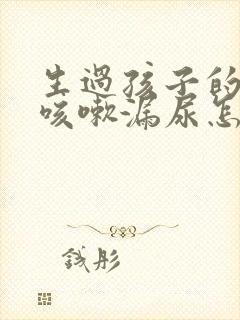 生過孩子的
咳嗽漏尿怎
钱彤